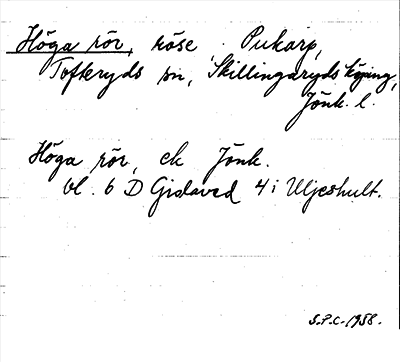 Höga rör, röse Pukarp,
Tofteryds sn, Skillingaryds köping,
Jönk. l.
Höga rör, ek Jönk.
bl. 6 D Gislaved 4 i Uljeshult.
S.P.C. 1958.